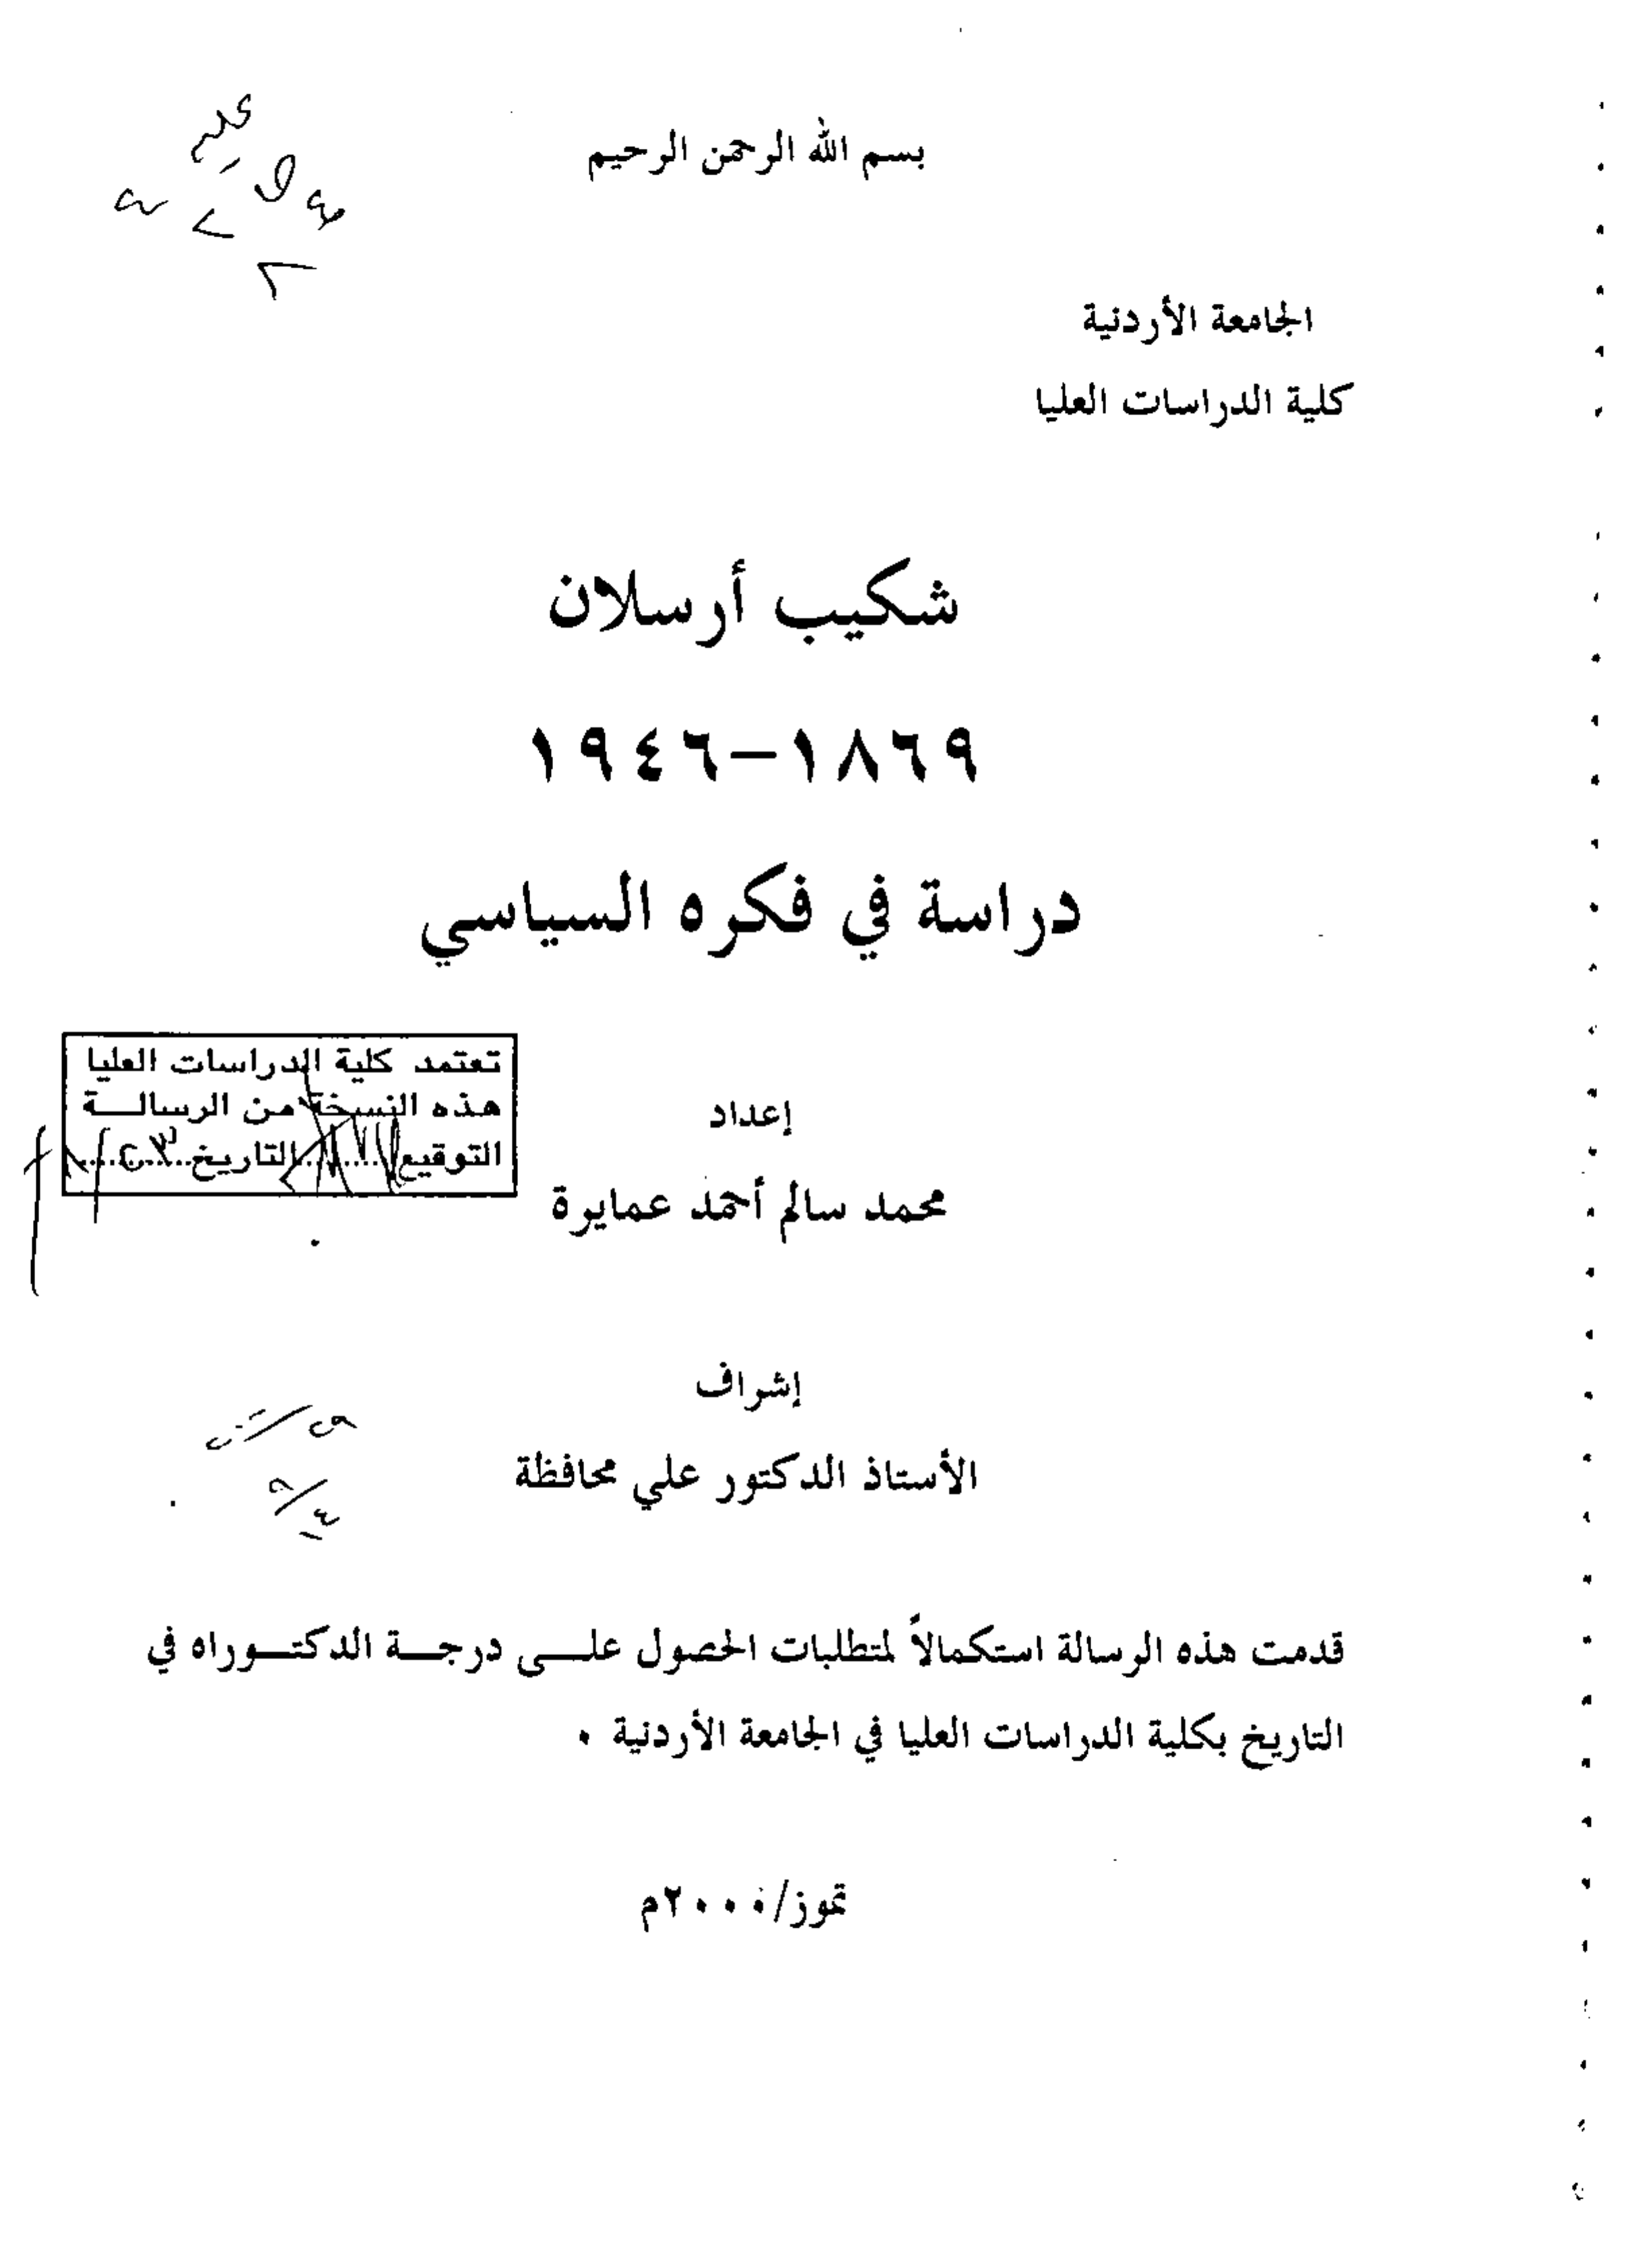 بسم الله الرحمن الرحيم
الجامعة الأردنية
كلية الدراسات العليا
شكيب أرسلان
١٨٦٩–١٩٤٦
دراسة في فكره السياسي
تعتمد كلية الدراسات العليا
هذه النسخة من الرسالة
التوقيع........التاريخ............
إعداد
محمد سالم أحمد عمايرة
إشراف
الأستاذ الدكتور علي محافظة
قدمت هذه الرسالة استكمالاً لمتطلبات الحصول على درجة الدكتوراه في
التاريخ بكلية الدراسات العليا في الجامعة الأردنية .
تموز/٢٠٠٠م